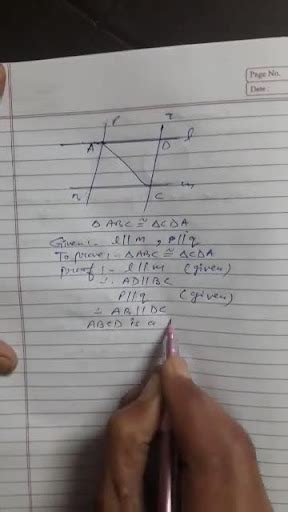 Page No.
Date
p
q
A
D
l
B
C
m
Δ ABC ≅ ΔCDA
Given:- l||m, p||q
To prove:- ΔABC ≅ ΔCDA
Proof:- l||m (given)
∴ AD||BC
p||q (given)
∴ AB||DC
ABCD is a